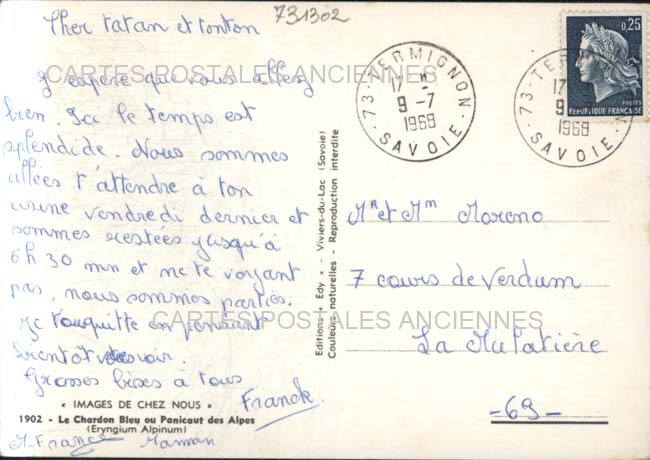 731302
Cher tatan et tonton
J'espère que vous allez
bien. Ici le temps est
splendide. Nous sommes
allées t'attendre à ton
usine vendredi dernier et
sommes restées jusqu'à
6 h 30 mn et ne te voyant
pas, nous sommes parties.
Je vous quitte en pensant
bientôt vous voir.
Grosses bises à tous
Franck.
« IMAGES DE CHEZ NOUS »
1902 - Le Chardon Bleu ou Panicaut des Alpes
(Eryngium Alpinum)
M. France Maman
Editions « Edy » - Viviers-du-Lac (Savoie)
Couleurs naturelles - Reproduction interdite
73 - TERMIGNON
17 H
9 - 7
1968
SAVOIE
73 - TERMIGNON
17
9
1968
SAVOIE
0,25
POSTES
REPUBLIQUE FRANÇAISE
Mr et Mm Moreno
7 cours de Verdum
La Mulatière
- 69 -
CARTES POSTALES ANCIENNES
CARTES POSTALES ANCIENNES